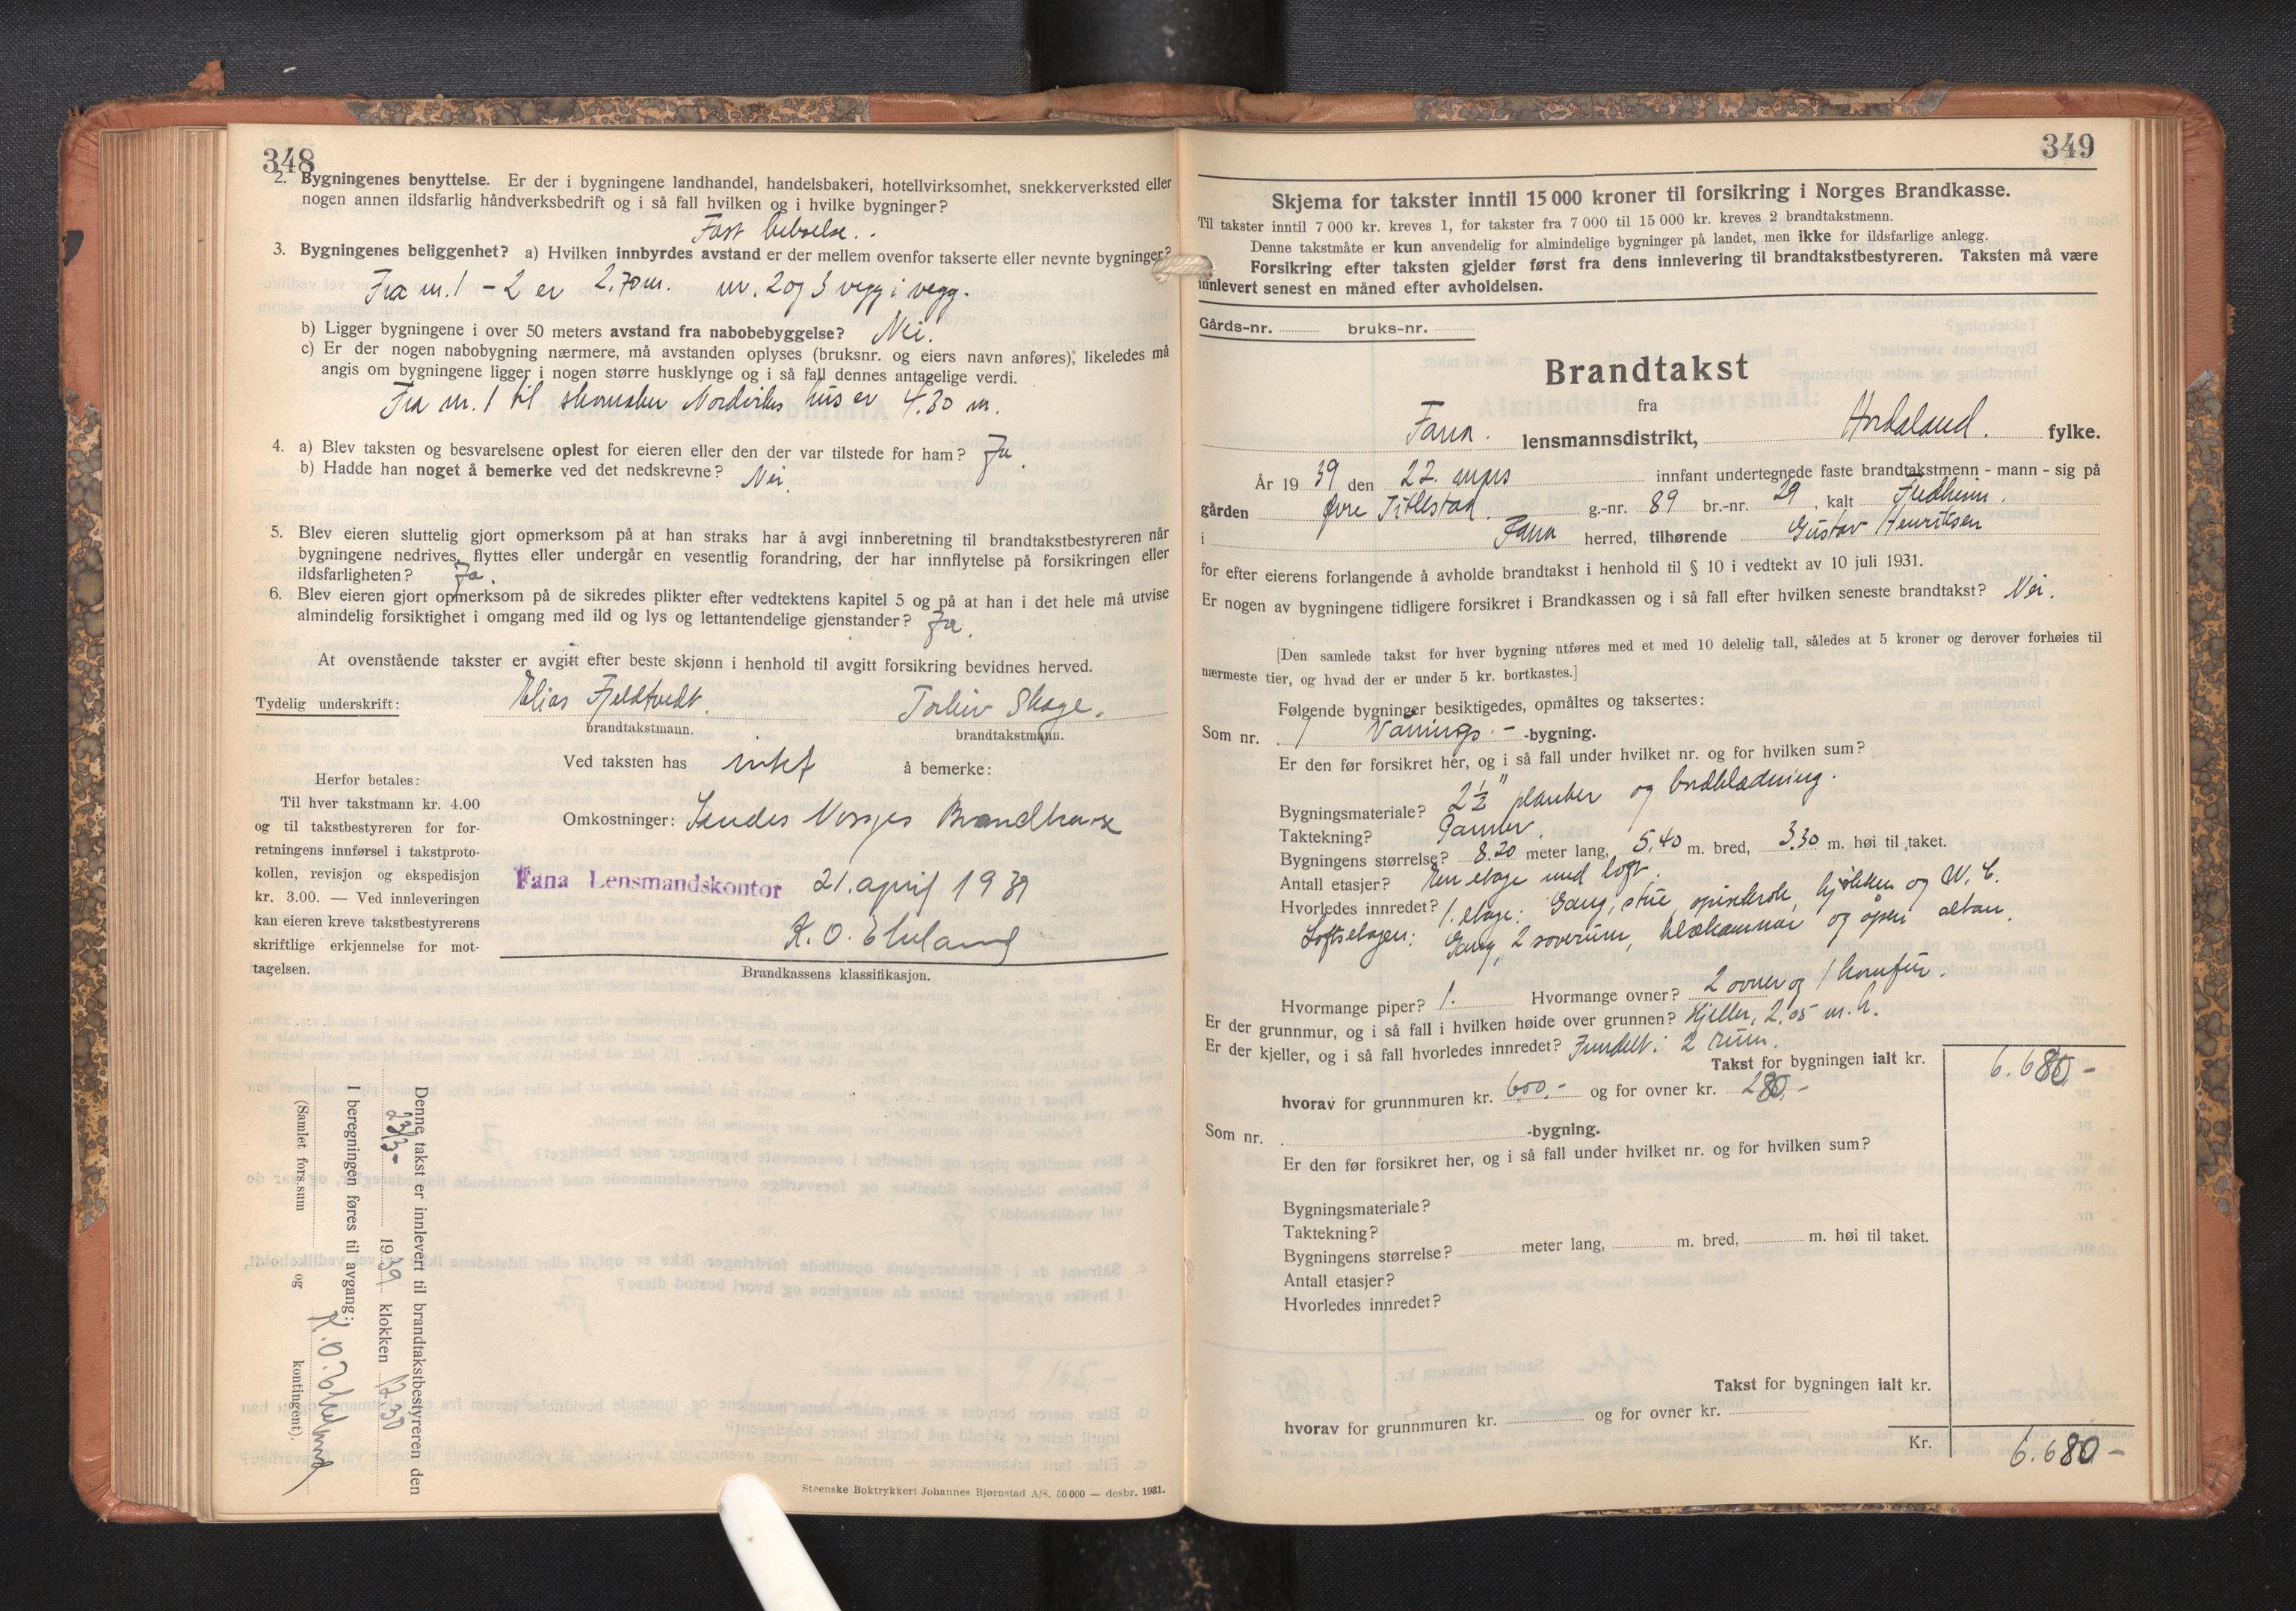 348
2. Bygningenes benyttelse. Er der i bygningene landhandel, handelsbakeri, hotellvirksomhet, snekkerverksted eller
nogen annen ildsfarlig håndverksbedrift og i så fall hvilken og i hvilke bygninger?
Fast beboelse.
3. Bygningenes beliggenhet? a) Hvilken innbyrdes avstand er der mellem ovenfor takserte eller nevnte bygninger?
Fra nr. 1 - 2 er 2.70 m. nr. 2 og 3 vegg i vegg.
b) Ligger bygningene i over 50 meters avstand fra nabobebyggelse? Nei.
c) Er der nogen nabobygning nærmere, må avstanden oplyses (bruksnr. og eiers navn anføres); likeledes må
angis om bygningene ligger i nogen større husklynge og i så fall dennes antagelige verdi.
Fra nr. 1 til skomaker Nordviks hus er 4.30 m.
4. a) Blev taksten og besvarelsene oplest for eieren eller den der var tilstede for ham? Ja.
b) Hadde han noget å bemerke ved det nedskrevne? Nei.
5. Blev eieren sluttelig gjort opmerksom på at han straks har å avgi innberetning til brandtakstbestyreren når
bygningene nedrives, flyttes eller undergår en vesentlig forandring, der har innflytelse på forsikringen eller
ildsfarligheten? Ja.
6. Blev eieren gjort opmerksom på de sikredes plikter efter vedtektens kapitel 5 og på at han i det hele må utvise
almindelig forsiktighet i omgang med ild og lys og lettantendelige gjenstander? Ja.
At ovenstående takster er avgitt efter beste skjønn i henhold til avgitt forsikring bevidnes herved.
Tydelig underskrift: Elias Fjeldtvedt. Torleiv Skage.
brandtakstmann. brandtakstmann.
Ved taksten has intet å bemerke:
Herfor betales:
Til hver takstmann kr. 4.00
og til takstbestyreren for for-
retningens innførsel i takstproto-
kollen, revisjon og ekspedisjon
kr. 3.00. — Ved innleveringen
kan eieren kreve takstbestyrerens
skriftlige erkjennelse for mot-
tagelsen.
Omkostninger: Sendes Norges Brandkasse
Fana Lensmandskontor 21. april 1939
K. O.
Brandkassens klassifikasjon.
Denne takst er innlevert til brandtakstbestyreren den
23/3- 1939 klokken 12.30
I beregningen føres til avgang:
K. O.
(Samlet fors.sum og kontingent).
Steenske Boktrykkeri Johannes Bjørnstad A/S. 50 000 — desbr. 1931.
349
Skjema for takster inntil 15 000 kroner til forsikring i Norges Brandkasse.
Til takster inntil 7 000 kr. kreves 1, for takster fra 7 000 til 15 000 kr. kreves 2 brandtakstmenn.
Denne takstmåte er kun anvendelig for almindelige bygninger på landet, men ikke for ildsfarlige anlegg.
Forsikring efter taksten gjelder først fra dens innlevering til brandtakstbestyreren. Taksten må være
innlevert senest en måned efter avholdelsen.
Gårds-nr. bruks-nr.
Brandtakst
fra
Fana. lensmannsdistrikt, Hordaland. fylke.
År 1939 den 22. mars innfant undertegnede faste brandtakstmenn - mann - sig på
gården Øvre Titlestad. g.-nr. 89 br.-nr. 29, kalt Fredheim.
i Fana herred, tilhørende Gustav Henriksen
for efter eierens forlangende å avholde brandtakst i henhold til § 10 i vedtekt av 10 juli 1931.
Er nogen av bygningene tidligere forsikret i Brandkassen og i så fall efter hvilken seneste brandtakst? Nei.
[Den samlede takst for hver bygning utføres med et med 10 delelig tall, således at 5 kroner og derover forhøies til
nærmeste tier, og hvad der er under 5 kr. bortkastes.]
Følgende bygninger besiktigedes, opmåltes og taksertes:
Som nr. 1 Vånings- -bygning.
Er den før forsikret her, og i så fall under hvilket nr. og for hvilken sum?
Bygningsmateriale? 2 ½" planker og bordklædning.
Taktekning? Panner.
Bygningens størrelse? 8.20 meter lang, 5,40 m. bred, 3.30 m. høi til taket.
Antall etasjer? En etage med loft.
Hvorledes innredet? 1. etage: Gang, stue, spisekrok, kjøkken og W. C.
Loftsetagen: Gang, 2 soverum, klækammer og åpen altan.
Hvormange piper? 1. Hvormange ovner? 2 ovner og 1 komfur.
Er der grunnmur, og i så fall i hvilken høide over grunnen? Kjeller, 2,05 m. h.
Er der kjeller, og i så fall hvorledes innredet? Inndelt i 2 rum.
Takst for bygningen ialt kr. 6.680,-
hvorav for grunnmuren kr. 600,- og for ovner kr. 280,-
Som nr. -bygning.
Er den før forsikret her, og i så fall under hvilket nr. og for hvilken sum?
Bygningsmateriale?
Taktekning?
Bygningens størrelse? meter lang, m. bred, m. høi til taket.
Antall etasjer?
Hvorledes innredet?
Takst for bygningen ialt kr.
hvorav for grunnmuren kr. og for ovner kr.
Kr. 6.680-